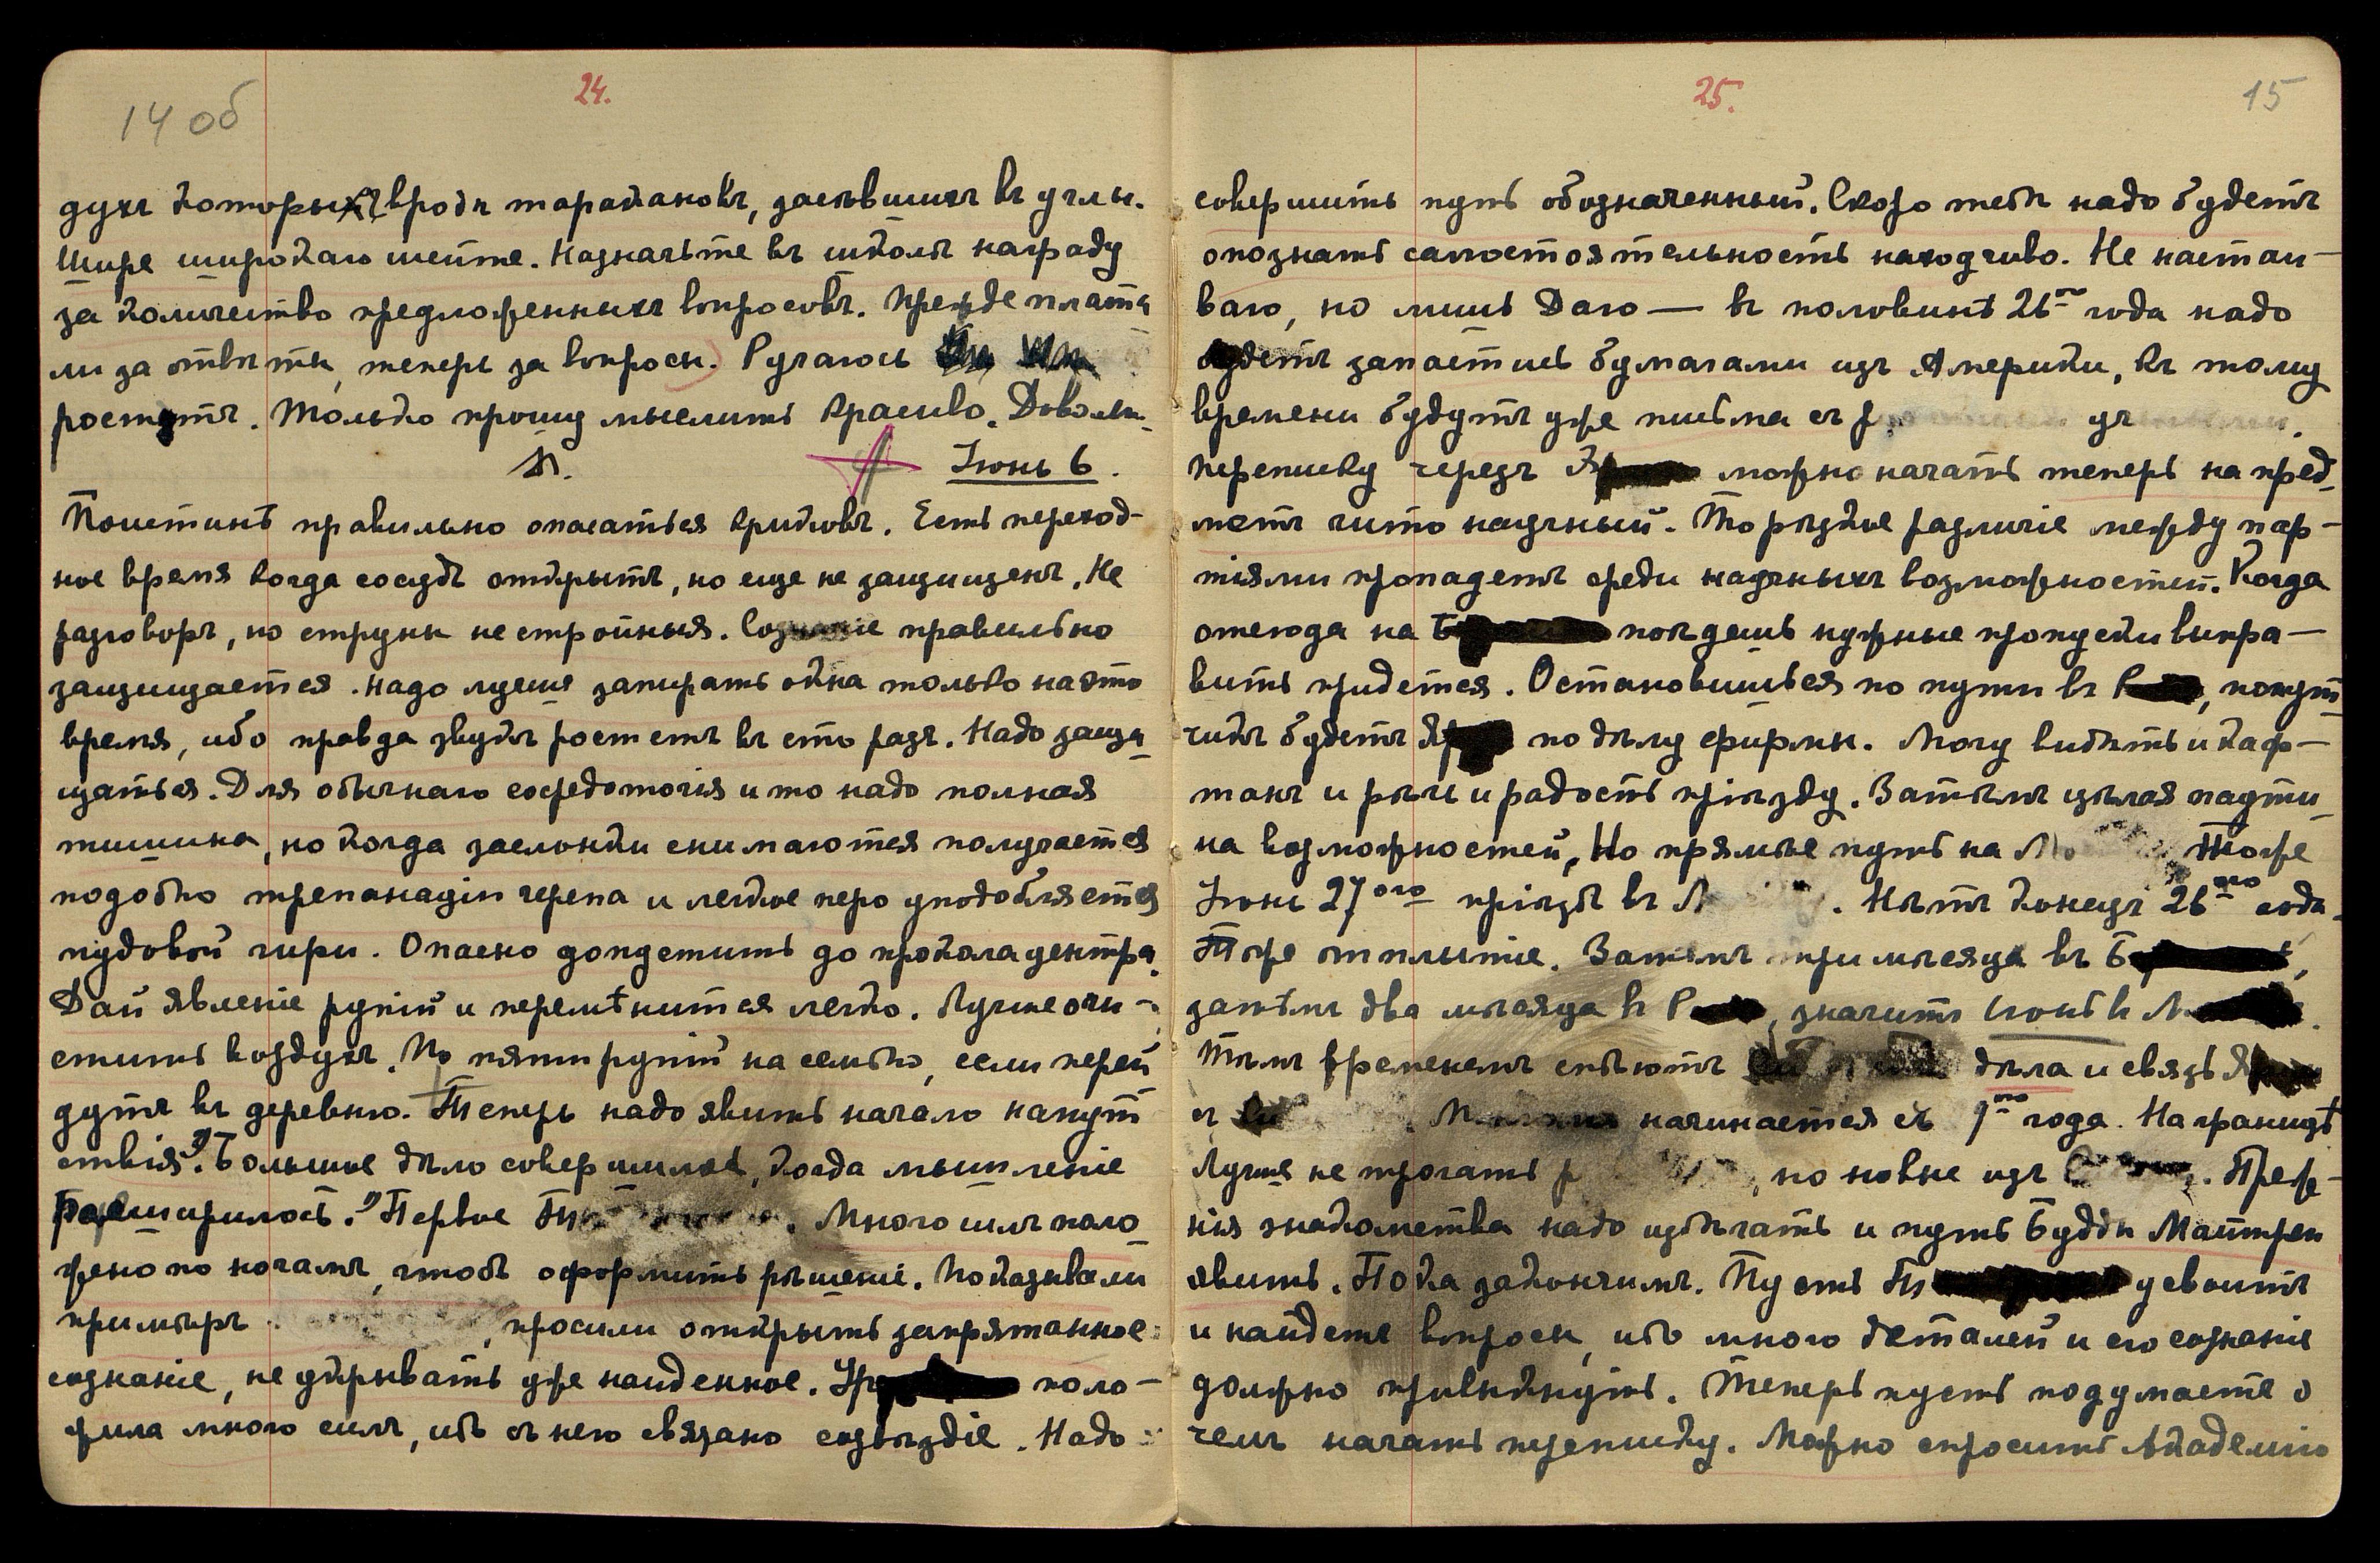 14 об
24.
духъ которыхъ вродѣ таракановъ, засѣвшихъ въ углы.
Шире широкаго шейте. Назначьте въ школѣ награду
за количество предложенныхъ вопросовъ. Прежде плати-
ли за отвѣты, теперь за вопросы. Ручаюсь
ростутъ. Только прошу мыслить красиво. Довольно.
Я. Іюнь 6.
Поистинѣ правильно опасаться криковъ. Есть переход-
ное время когда сосудъ открытъ, но еще не защищенъ. Не
разговоръ, но струны нестройныя. Сознаніе правильно
защищается. Надо лучше запирать окна только на это
время, ибо правда звукъ ростетъ въ сто разъ. Надо защи-
щаться. Для обычнаго средоточія и то надо полная
тишина, но когда заслонки снимаются получается
подобно трепанаціи черепа и легкое перо уподобляется
пудовой гири. Опасно допустить до прокола центра.
Дай явленіе рупій и перемѣнится легко. Лучше очи-
стить воздухъ. По пяти рупій на семью, если перей
дутъ въ деревню. Теперь надо явить начало напут
ствія. "Большое дѣло совершилось, когда мышленіе
расширилось." Первое. Много силъ поло
жено по ночамъ, чтобъ оформить рѣшеніе. Показывали
примѣръ, просили открыть запрятанное
сознаніе, не укрывать уже найденное. поло-
жила много силъ, ибо съ нею связано созвѣздіе. Надо
25.
15
совершить путь обозначенный. Скоро тебѣ надо будетъ
опознать самостоятельность находчиво. Не настаи-
ваю, но лишь даю — въ половинѣ 26го года надо
будетъ запастись бумагами изъ Америки, къ тому
времени будутъ уже письма съ
Переписку черезъ можно начать теперь на пред-
метъ чисто научный. То рѣзкое различіе между пар-
тіями пропадетъ среди научныхъ возможностей. Когда
отсюда на поѣдешь нужные пропуски выпра-
вить придется. Остановишься по пути въ, попут-
чикъ будетъ по дѣлу фирмы. Могу видѣть и каф-
танъ и рѣчь и радость пріѣзду. Затѣмъ цѣлая паути-
на возможностей, но прямѣе путь на Тоже
Іюнь 27ого пріѣздъ въ. Нѣтъ конецъ 26ого года.
Тоже отплытіе. Затѣмъ три мѣсяца въ,
затѣмъ два мѣсяца въ, значитъ Іюнь въ.
Тѣмъ временемъ спѣютъ дѣла и связь
съ. начинается съ 1го года. На границѣ
лучше не трогать, но новые изъ. Преж-
нія знакомства надо избѣгать и путь Будды Майтреи
явить. Пока закончимъ. Пусть усвоитъ
и найдетъ вопросы, ибо много деталей и его сознаніе
должно привыкнуть. Теперь пусть подумаетъ о
чемъ начать переписку. Можно спросить Академію